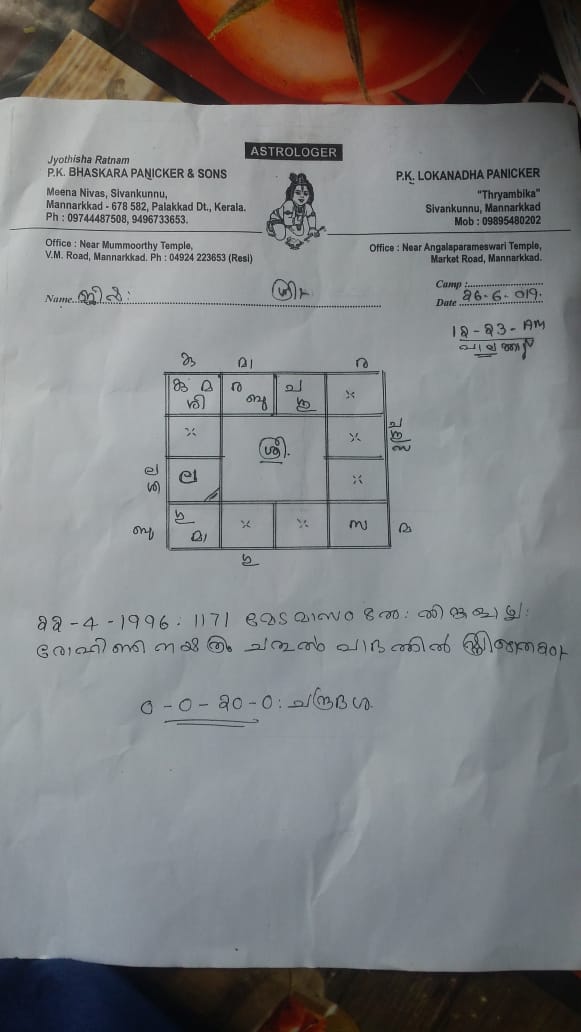 ASTROLOGER
Jyothisha Ratnam
P.K. BHASKARA PANICKER & SONS
Meena Nivas, Sivankunnu,
Mannarkkad - 678 582, Palakkad Dt., Kerala.
Ph : 09744487508, 9496733653.
P.K. LOKANADHA PANICKER
"Thryambika"
Sivankunnu, Mannarkkad
Mob : 09895480202
Office : Near Mummoorthy Temple,
V.M. Road, Mannarkkad. Ph : 04924 223653 (Resi)
Office : Near Angalaparameswari Temple,
Market Road, Mannarkkad.
Name
ശ്രീ
Camp :
Date 26-6-019.
12-23-AM
മാ
ര
മ ര ച
ശി ബു
ശ്രീ.
ല
ശി
ല
ബു
ഗു മാ സ മ
ഗു
22-4-1996. 1171 മേടമാസം തിങ്കളാഴ്ച:
രോഹിണി നക്ഷത്രം പാദത്തിൽ
0-0-20-0: ചന്ദ്രദശ